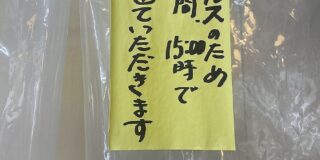 ルスのため
間 15:00時で
せていただきます